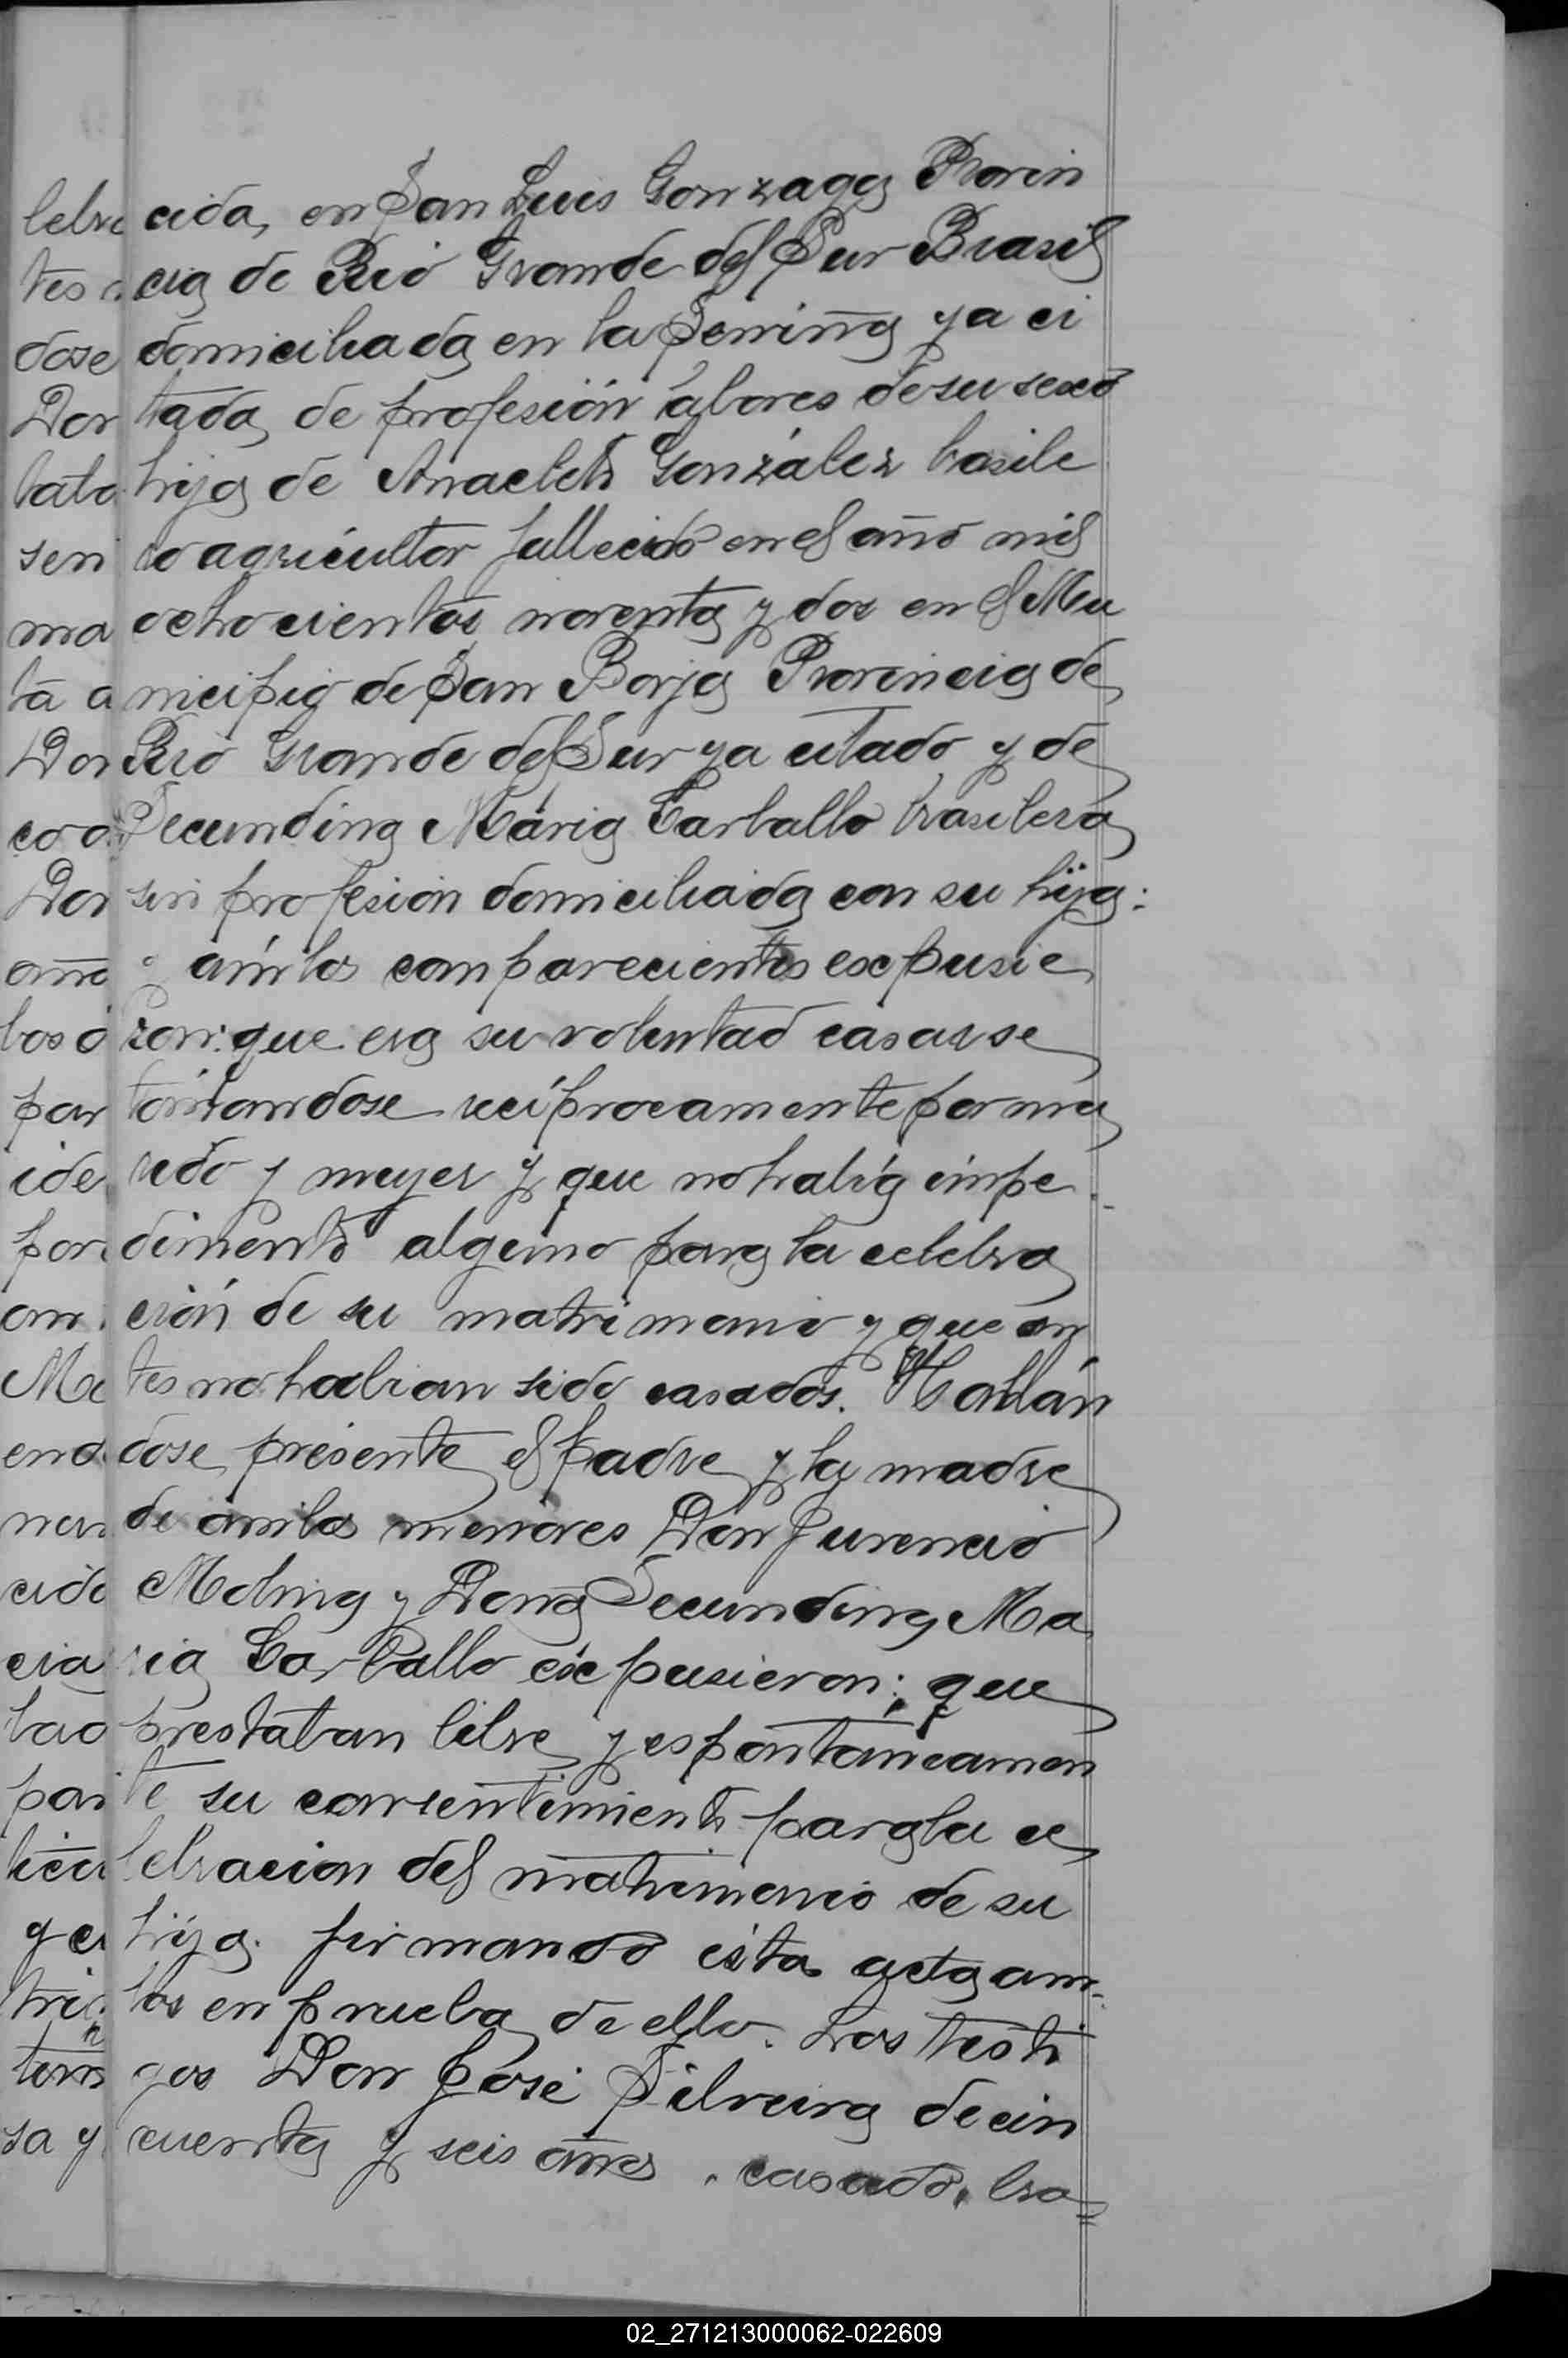 cida, en San Luis Gonzaga Provin
cia de Rio Grande del Sur Brasil
domiciliada en la Serrina ya ci
tada, de profesión labores de su sexo
hija de Anacleto González brasile
ro agricultor fallecido en el año mil
ochocientos noventa y dos en el Mu
nicipio de San Borja Provincia de
Rio Grande del Sur ya citado, y de
Secundina María Carballo brasilera
sin profesión domiciliada con su hija:
y ambos comparecientes expusie
ron: que era su voluntad casarse
tomandose recíprocamente por ma
rido y mujer y que no había impe
dimento alguno para la celebra
ción de su matrimonio y que an
tes no habian sido casados. Hallán
dose presente el padre y la madre
de ambos menores Don Juvencio
Molina y Doña Secundina Ma
ria Carballo expusieron: que
prestaban libre y espontaneamen
te su consentimiento para la ce
lebracion del matrimonio de su
hija. firmando ésta acta am-
bos en prueba de ello. Los testi
gos Don José Silveira de cin
cuenta y seis años, casado, bra=
lebra
tes
dose
Don
sen
ma
ta a
Don
co
Don
año
bos
por
ide
por
Ma
end
cido
cia
par
tri
sa y
02_271213000062-022609